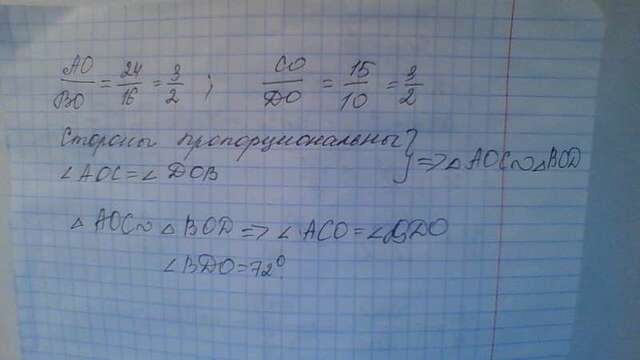 AO/BO = 24/16 = 3/2 ; CO/DO = 15/10 = 3/2
Стороны пропорциональны
∠AOC=∠DOB } => △AOC∾△BOD
△AOC∾△BOD => ∠ACO=∠BDO
∠BDO=72°